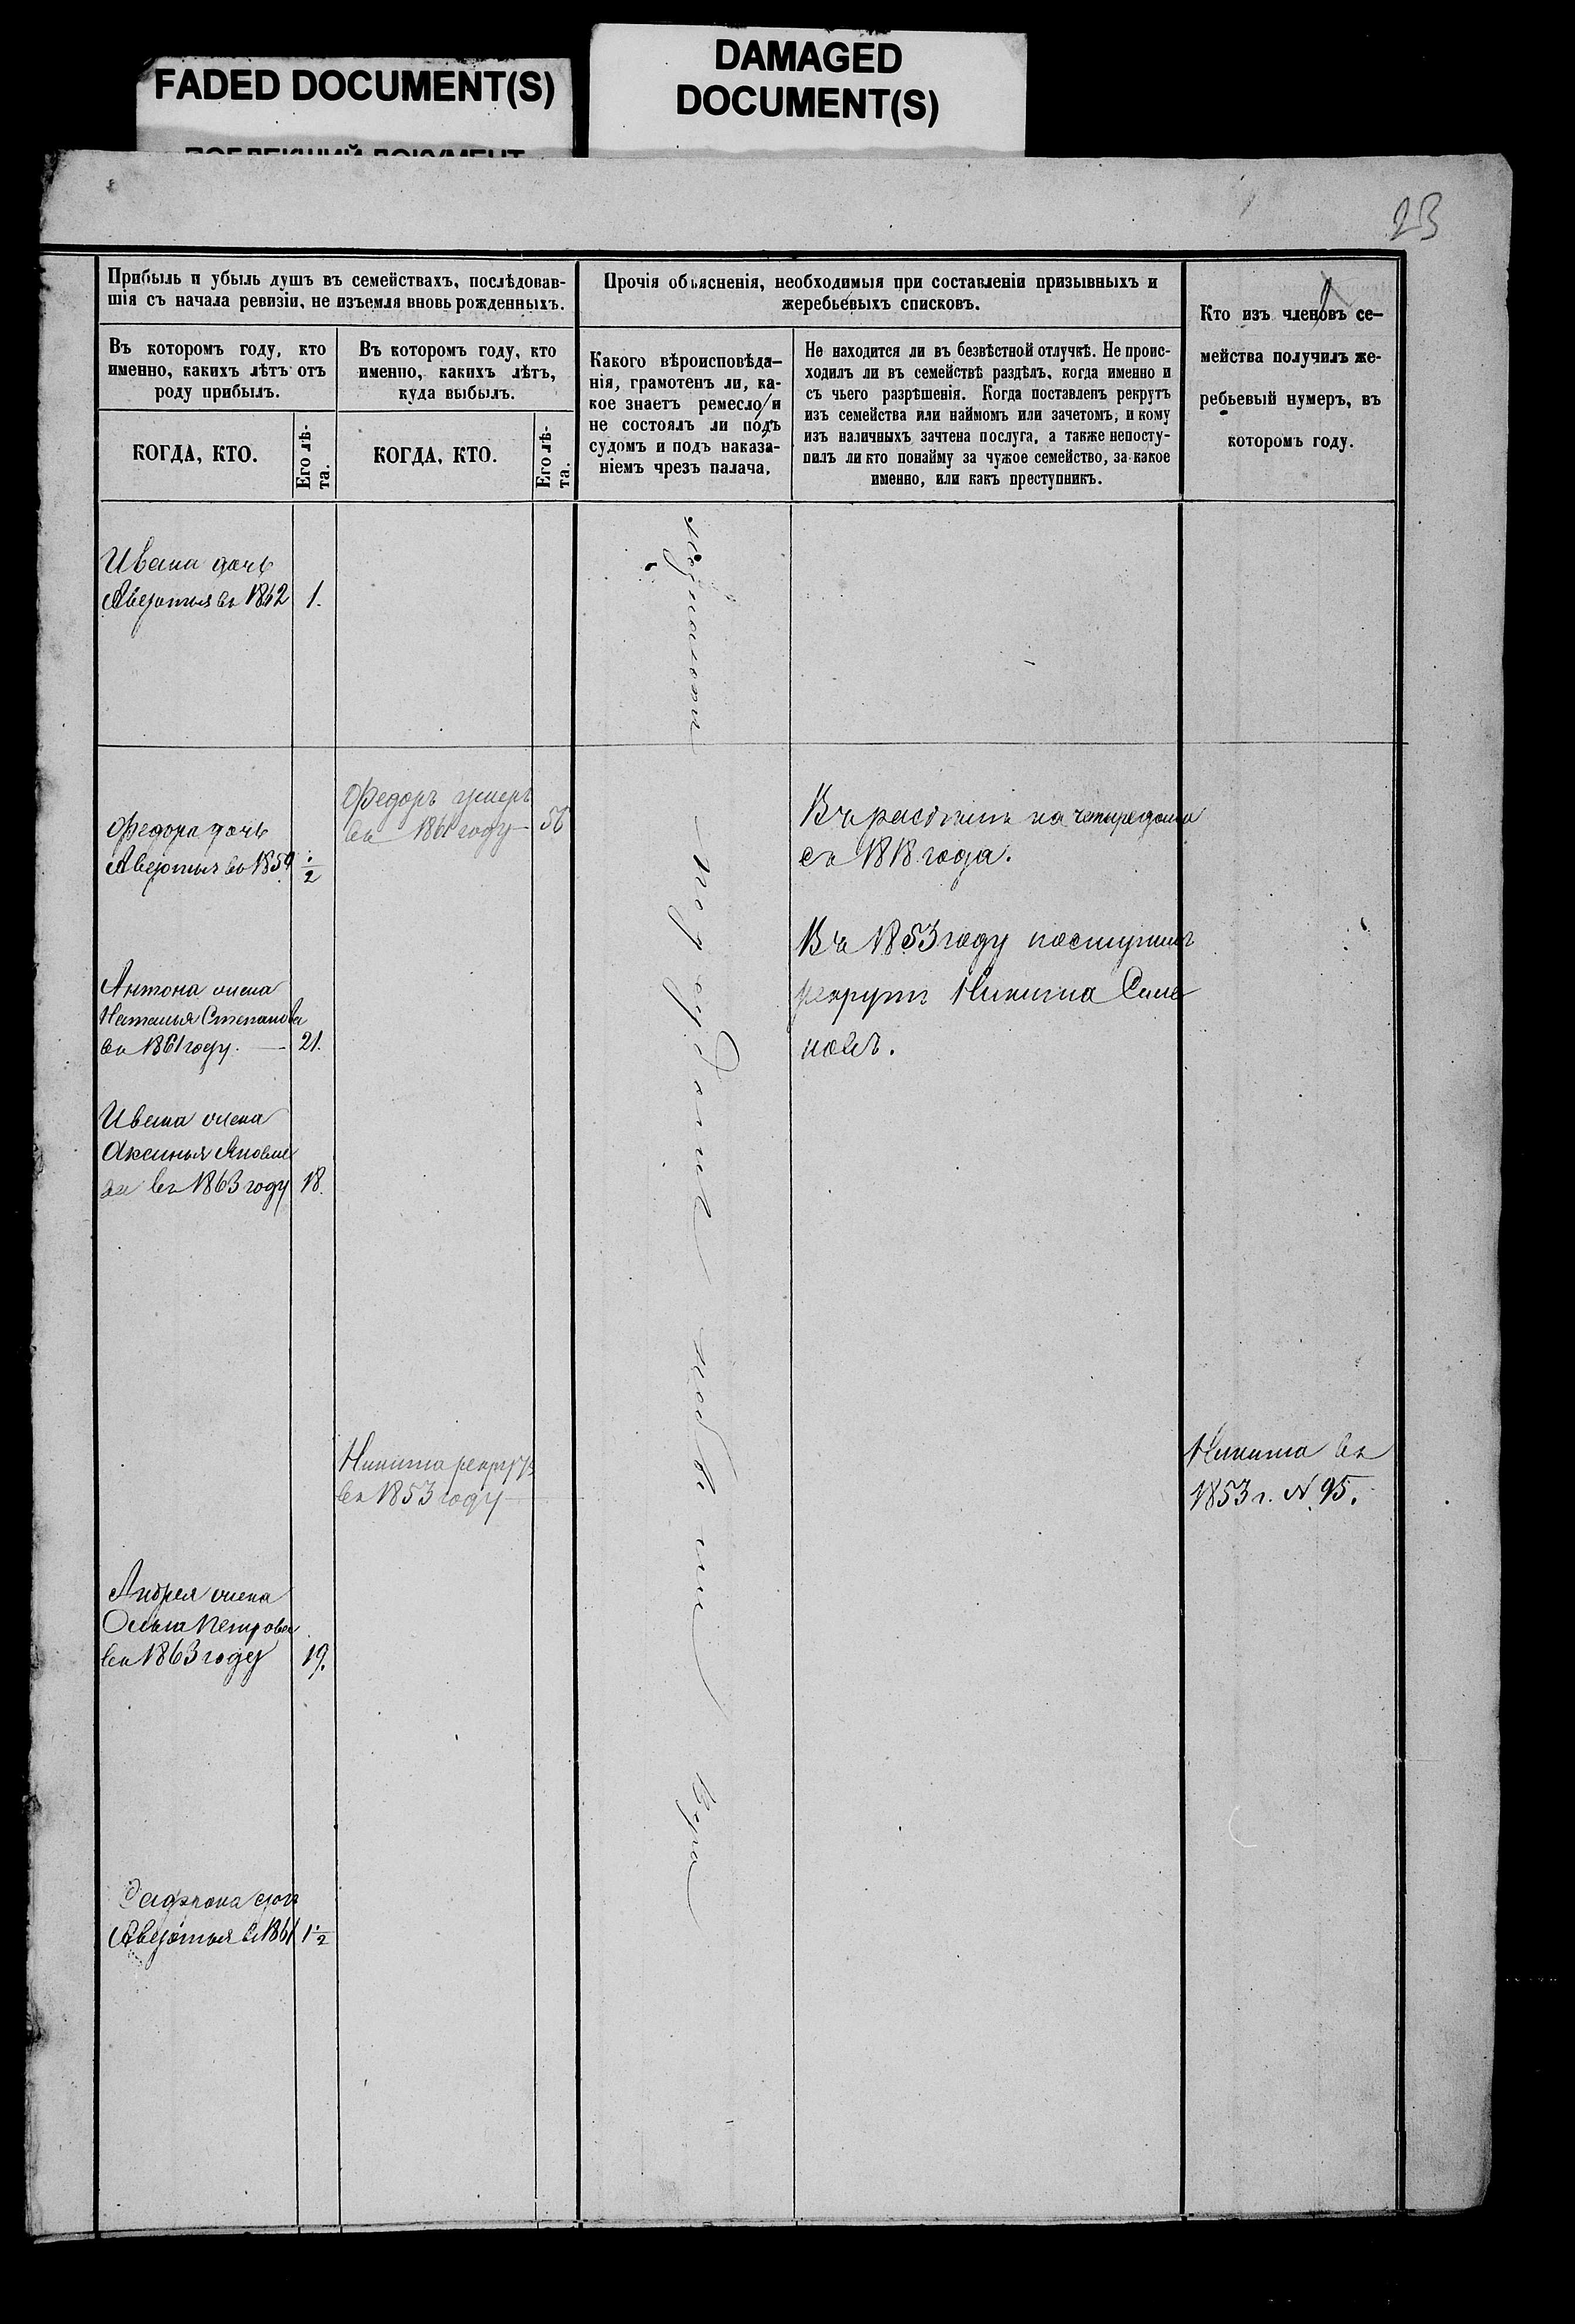 FADED DOCUMENT(S)
DAMAGED
DOCUMENT(S)
23
Прибыль и убыль душъ въ семействахъ, послѣдовав-
шія съ начала ревизіи, не изъемля вновь рожденныхъ.
Въ которомъ году, кто
именно, какихъ лѣтъ отъ
роду прибылъ.
КОГДА, КТО.
Его лѣ-
та.
Въ которомъ году, кто
именно, какихъ лѣтъ,
куда выбылъ.
КОГДА, КТО.
Его лѣ-
та.
Прочія объясненія, необходимыя при составленіи призывныхъ и
жеребьевыхъ списковъ.
Какого вѣроисповѣда-
нія, грамотенъ ли, ка-
кое знаетъ ремесло и
не состоялъ ли подъ
судомъ и подъ наказа-
ніемъ чрезъ палача.
Не находится ли въ безвѣстной отлучкѣ. Не проис-
ходилъ ли въ семействѣ раздѣлъ, когда именно и
съ чьего разрѣшенія. Когда поставленъ рекрутъ
изъ семейства или наймомъ или зачетомъ, и кому
изъ наличныхъ зачтена послуга, а также непосту-
пилъ ли кто понайму за чужое семейство, за какое
именно, или какъ преступникъ.
Кто изъ членовъ се-
мейства получилъ же-
ребьевый нумеръ, въ
которомъ году.
Ивана дочь
Авдотья въ 1862 1.
Федоръ умеръ
въ 1861 году 56
Федора дочь
Авдотья въ 1859 1/2
на четыре дома
съ 1818 года.
Въ 1853 году поступилъ
рекрутъ Никита Семе
новъ.
Антона жена
Наталья Степанова
въ 1861 году. 21.
Ивана жена
Аксинья Яковле
ва въ 1863 году 18.
Никита рекрутъ
въ 1853 году
Никита въ
1853 г. № 95.
Андрея жена
Ольга Петрова
въ 1863 году 19.
дочь
Авдотья въ 1861 1 1/2